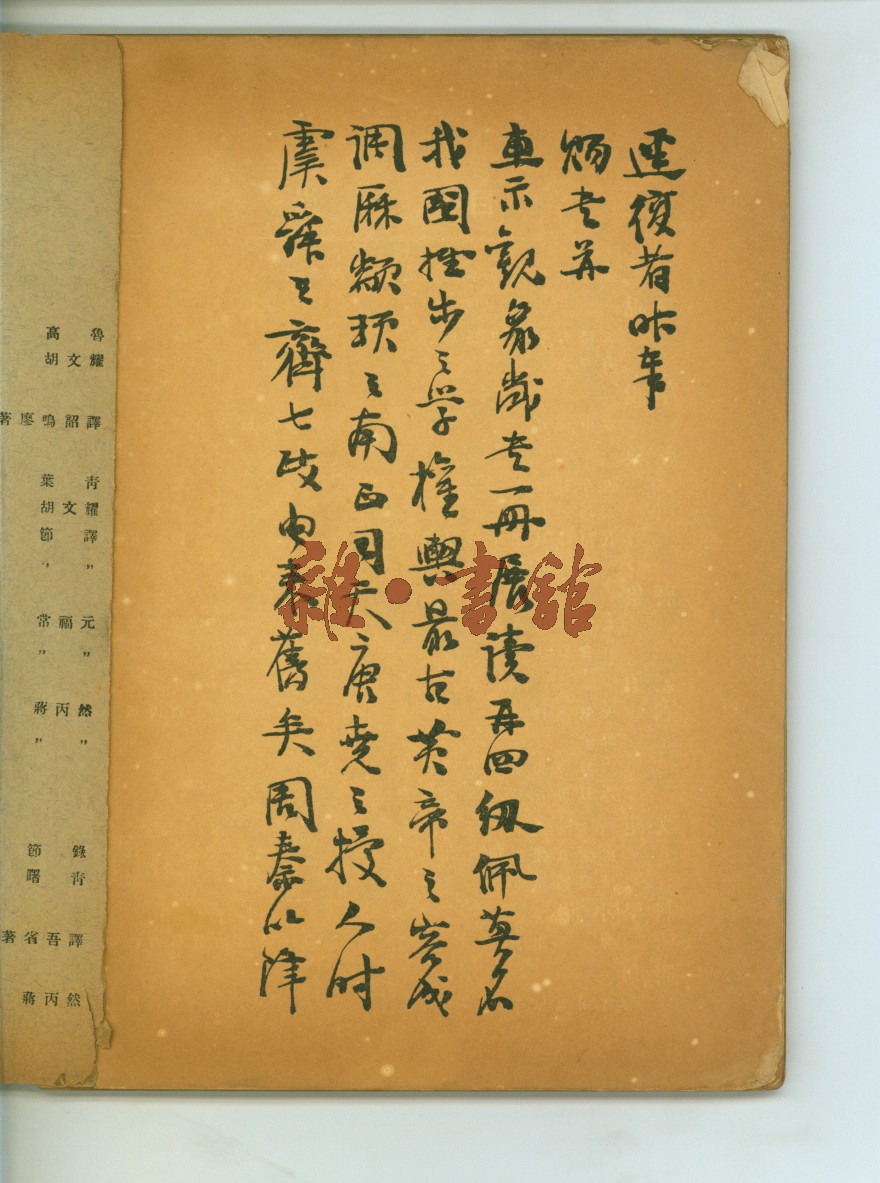 逕復者昨奉
賜書並
惠示觀象歲書一冊展讀再四紉佩莫名
我國推步之學權輿最古黃帝之容成
調厤顓頊之南正司天唐堯之授人時
虞舜之齊七政由來舊矣周秦以降
雜·書館
高魯
胡文耀
著廖鳴韶譯
葉青
胡文耀
節譯
〃〃
常福元
〃〃
蔣丙然
〃〃
節錄
曙青
著省吾譯
蔣丙然